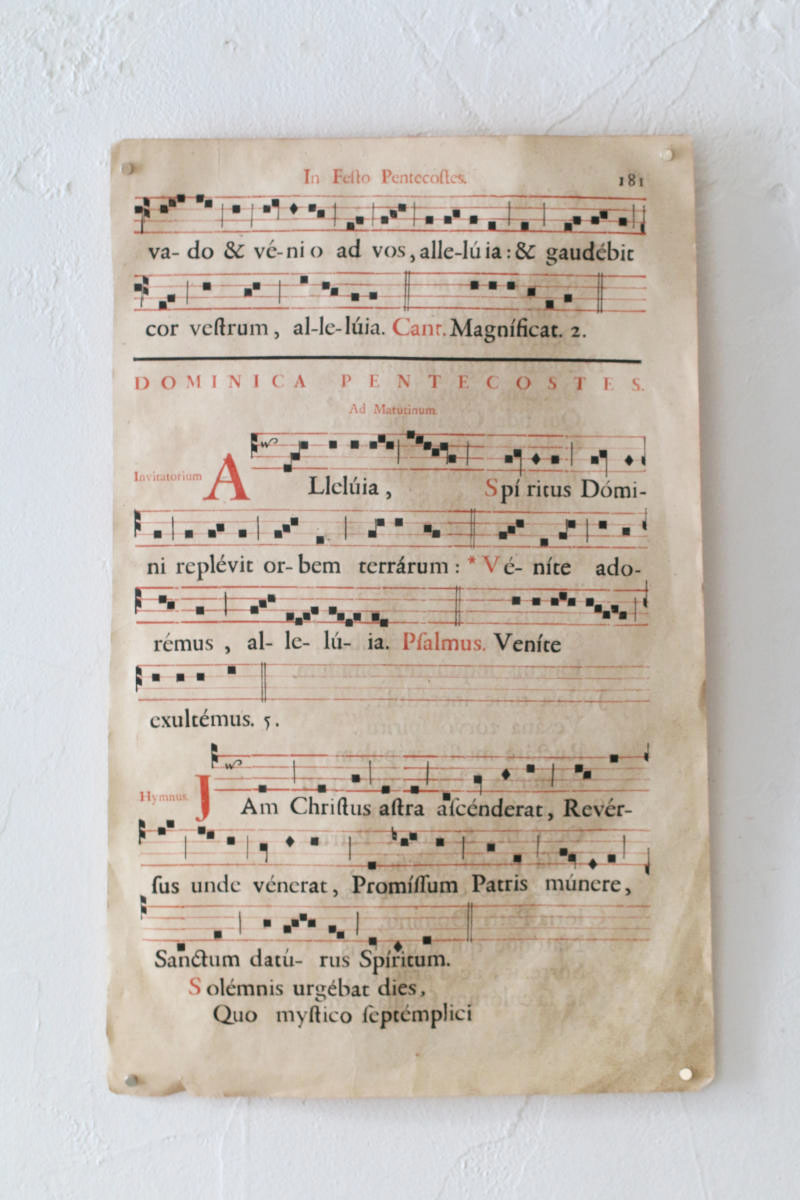 In Feſto Pentecoſtes. 181
va- do & vé-ni o ad vos, alle-lú ia: & gaudébit
cor veſtrum, al-le-lúia. Cant. Magníficat. 2.
DOMINICA PENTECOSTES.
Ad Matutinum.
Invitatorium A Llelúia, Spí ritus Dómi-
ni replévit or-bem terrárum: * Vé- níte ado-
rémus, al- le- lú- ia. Pſalmus. Veníte
exultémus. 5.
Hymnus. J Am Chriſtus aſtra aſcénderat, Revér-
ſus unde vénerat, Promíſſum Patris múnere,
Sanctum datú- rus Spíritum.
Solémnis urgébat dies,
Quo myſtico ſeptémplici